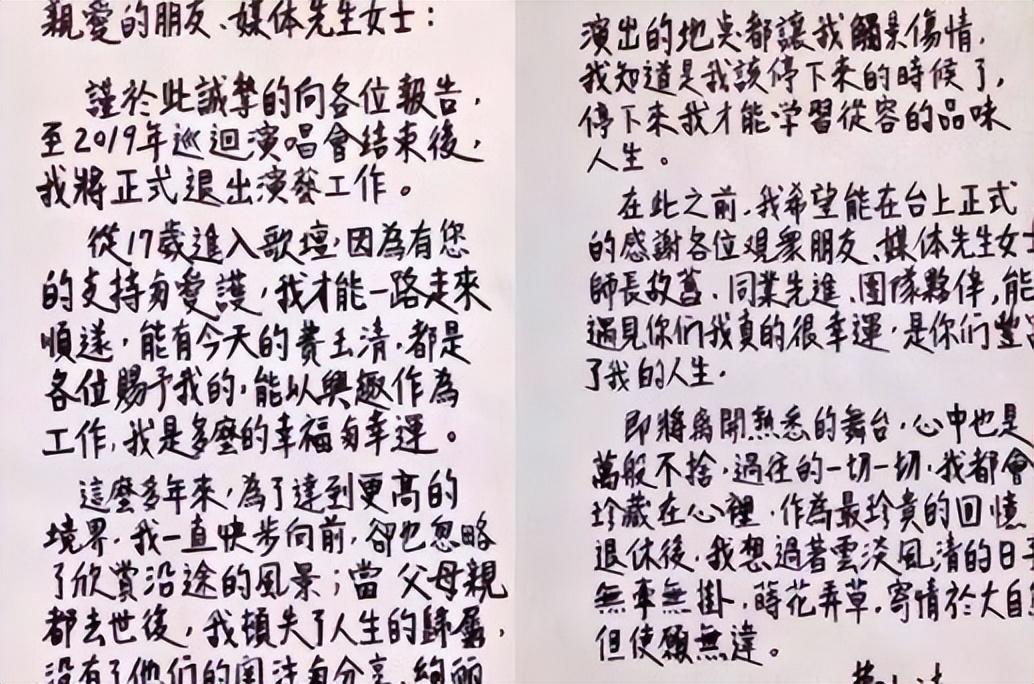 親愛的朋友、媒体先生女士：
謹於此誠摯的向各位報告，
至2019年巡迴演唱會结束後，
我將正式退出演藝工作。
從17歲進入歌壇，因為有您
的支持与愛護，我才能一路走來
順遂，能有今天的費玉清，都是
各位賜予我的，能以興趣作為
工作，我是多麼的幸福与幸運。
這麼多年來，為了達到更高的
境界，我一直快步向前，卻也忽略
了欣賞沿途的風景；當父母親
都去世後，我頓失了人生的歸屬，
沒有了他們的関注与分享，絢麗
演出的地点都讓我觸景傷情，
我知道是我該停下來的時候了，
停下來我才能学習從容的品味
人生。
在此之前，我希望能在台上正式
的感謝各位观眾朋友、媒体先生女士
師長故舊、同業先進、团隊夥伴，能
遇見你們我真的很幸運，是你們豐
了我的人生．
即將离開熟悉的舞台，心中也是
萬般不捨，過往的一切一切，我都會
珍藏在心裡，作為最珍貴的回憶
退休後，我想過著雲淡風清的日子
無牽無掛，蒔花弄草，寄情於大自
但使願無違。